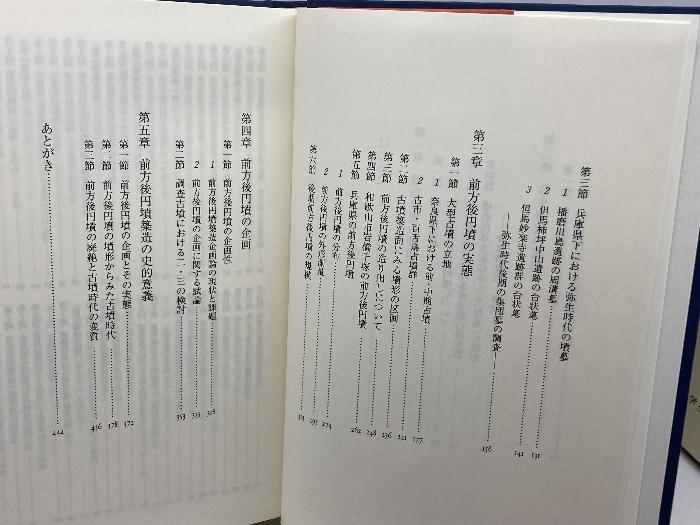 第三節 兵庫県下における弥生時代の墳墓
1 播磨川島遺跡の周溝墓……131
2 但馬柿坪中山遺跡の台状墓……141
3 但馬妙楽寺遺跡群の台状墓
――弥生時代後期の集団墓の調査――……156
第三章 前方後円墳の実態
第一節 大型古墳の立地
1 奈良県下における前・中期古墳……177
2 古市・百舌鳥古墳群……221
第二節 古墳築造面にみる墳形の区画……236
第三節 前方後円墳の造り出しについて……248
第四節 和歌山市岩橋千塚の前方後円墳……262
第五節 兵庫県の前方後円墳
1 前方後円墳の分布……274
2 前方後円墳の外形測量……295
第六節 後期前方後方古墳の規模……321
第四章 前方後円墳の企画
第一節 前方後円墳の企画性
1 前方後円墳築造企画論の現状と課題……328
2 前方後円墳の企画に関する試論……335
第二節 調査古墳における二・三の検討……353
第五章 前方後円墳築造の史的意義
第一節 前方後円墳の企画とその実態……372
第二節 前方後円墳の墳形からみた古墳時代……378
第三節 前方後円墳の廃絶と古墳時代の変質……436
あとがき……444